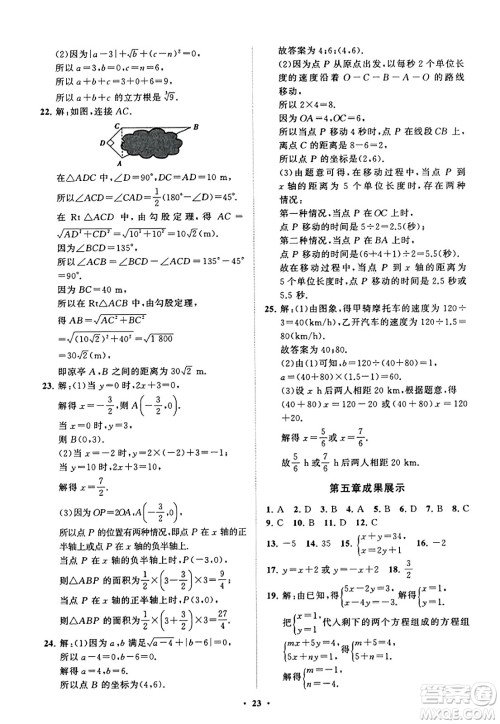 (2)因为|a-3|+√b+(c-6)²=0,
所以 a=3,b=0,c=6,
所以 a+b+c=9,
所以 a+b+c 的立方根是∛9.
22. 解:如图,连接 AC.
C
B
D
A
在△ADC 中,∠D=90°,AD=CD=10 m,
所以∠ACD=∠CAD=1/2(180°-∠D)=45°.
在 Rt△ADC 中,由勾股定理,得 AC=
√(AD²+CD²)=√(10²+10²)=10√2(m).
因为∠BCD=135°,
所以∠ACB=∠BCD-∠ACD=90°.
因为 BC=40 m,
所以在 Rt△ACB 中,由勾股定理,
得 AB=√(AC²+BC²)
=√((10√2)²+40²)=√1 800
=30√2(m).
即凉亭 A,B 之间的距离为30√2 m.
23. 解:(1)当 y=0 时,2x+3=0,
解得 x=-3/2,则 A(-3/2,0).
当 x=0 时,y=3,
则 B(0,3).
(2)当 x=-2 时,y=2×(-2)+3=-1;
当 y=10 时,2x+3=10,
解得 x=7/2.
(3)因为 OP=2OA,A(-3/2,0),
所以点 P 的位置有两种情况,点 P 在 x 轴的正
半轴上或点 P 在 x 轴的负半轴上.
当点 P 在 x 轴负半轴上时,P(-3,0),
则△ABP 的面积为1/2×(3-3/2)×3=9/4;
当点 P 在 x 轴的正半轴上时,P(3,0),
则△ABP 的面积为1/2×(3+3/2)×3=27/4.
24. 解:(1)因为 a,b 满足√(a-4)+|b-6|=0,
所以 a-4=0,b-6=0,
解得 a=4,b=6,
所以点 B 的坐标是(4,6).
故答案为 4;6;(4,6).
(2)因为点 P 从原点出发,以每秒 2 个单位长
度的速度沿着 O—C—B—A—O 的路线
移动,
所以 2×4=8.
因为 OA=4,OC=6,
所以当点 P 移动 4 秒时,在线段 CB 上,离
点 C 的距离是 8-6=2,
所以点 P 的坐标是(2,6).
(3)由题意可得,在移动过程中,当点 P 到
x 轴的距离为 5 个单位长度时,存在两种
情况:
第一种情况,当点 P 在 OC 上时,
点 P 移动的时间是 5÷2=2.5(秒);
第二种情况,当点 P 在 BA 上时,
点 P 移动的时间是(6+4+1)÷2=5.5(秒).
故在移动过程中,当点 P 到 x 轴的距离为
5 个单位长度时,点 P 移动的时间是 2.5 秒或
5.5 秒.
25. 解:(1)由图可得,甲骑摩托车的速度为 120÷
3=40(km/h),乙开汽车的速度为 120÷1.5=
80(km/h).
故答案为 40;80.
(2)由(1)可知,b=120÷(40+80)=1,
a=(1.5-1)×(40+80)=60.
(3)设出发 x h 两人相距 20 km,根据题意,得
(40+80)x=120-20或(40+80)x=
120+20,
解得 x=5/6或 x=7/6,
故出发5/6 h或7/6 h 两人相距 20 km.
第五章成果展示
1. A 2. D 3. D 4. B 5. B 6. D 7. D 8. D
9. C 10. C 11. B 12. D
13. -5 14. 35 15. {x+y=34, x=2y+1 16. -2
17. y=x+2或 y=-x+2 18. 3/2
19. 解:由已知,得{5x-2y=3, x+y=0, 解得{x=1, y=-1.
把{x=1, y=-1 代入剩下的两个方程组成的方程组
{m+5=4, 1-n=1, 解得{m=-1, n=0.
23